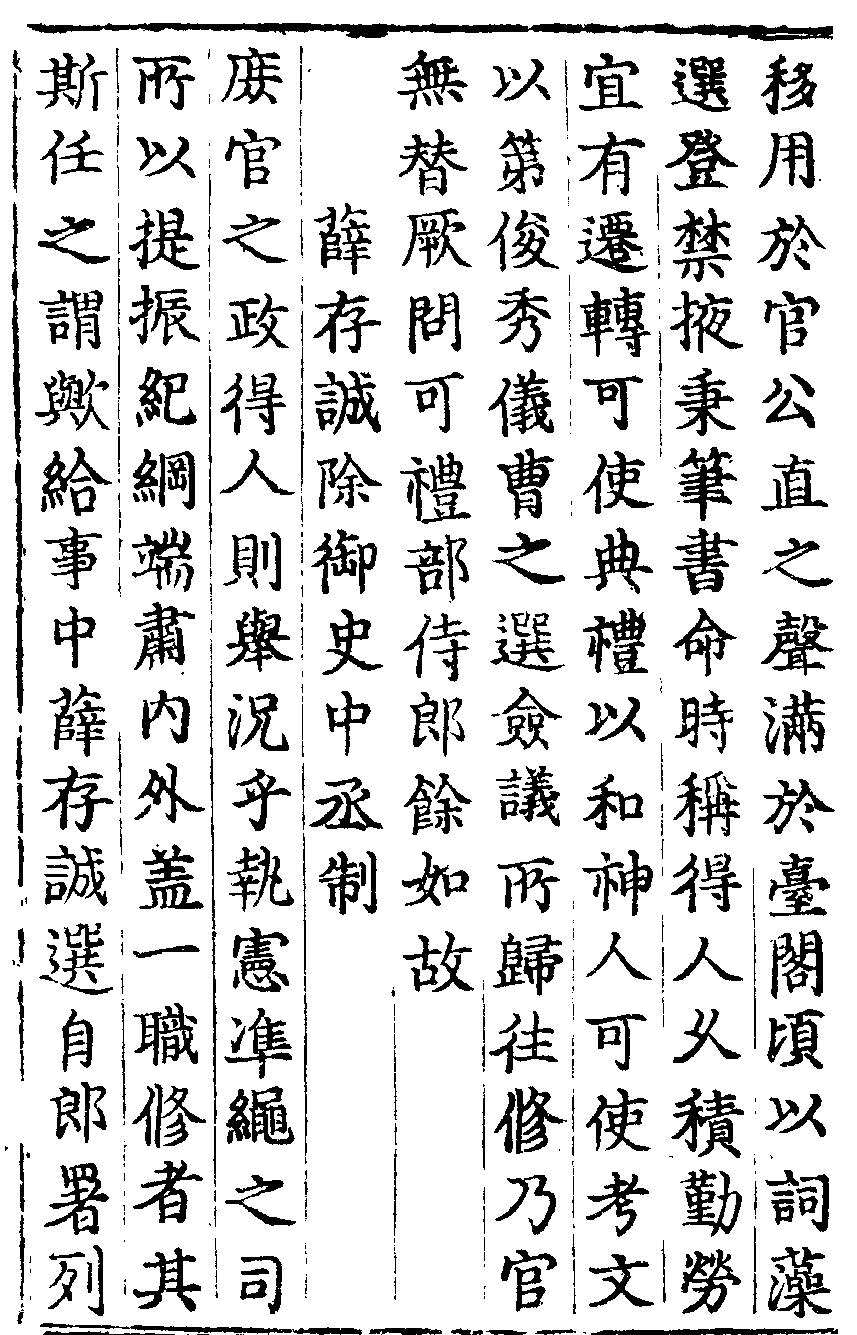 移用於官公直之聲滿於臺閣頃以詞藻
選登禁掖秉筆書命時稱得人乆積勤勞
宜有遷轉可使典禮以和神人可使考文
以第俊秀儀曹之選僉議所歸往修乃官
無替厥問可禮部侍郎餘如故
薛存誠除御史中丞制
庶官之政得人則舉況乎執憲準繩之司
所以提振紀綱端肅内外盖一職修者其
斯任之謂歟給事中薛存誠選自郎署列